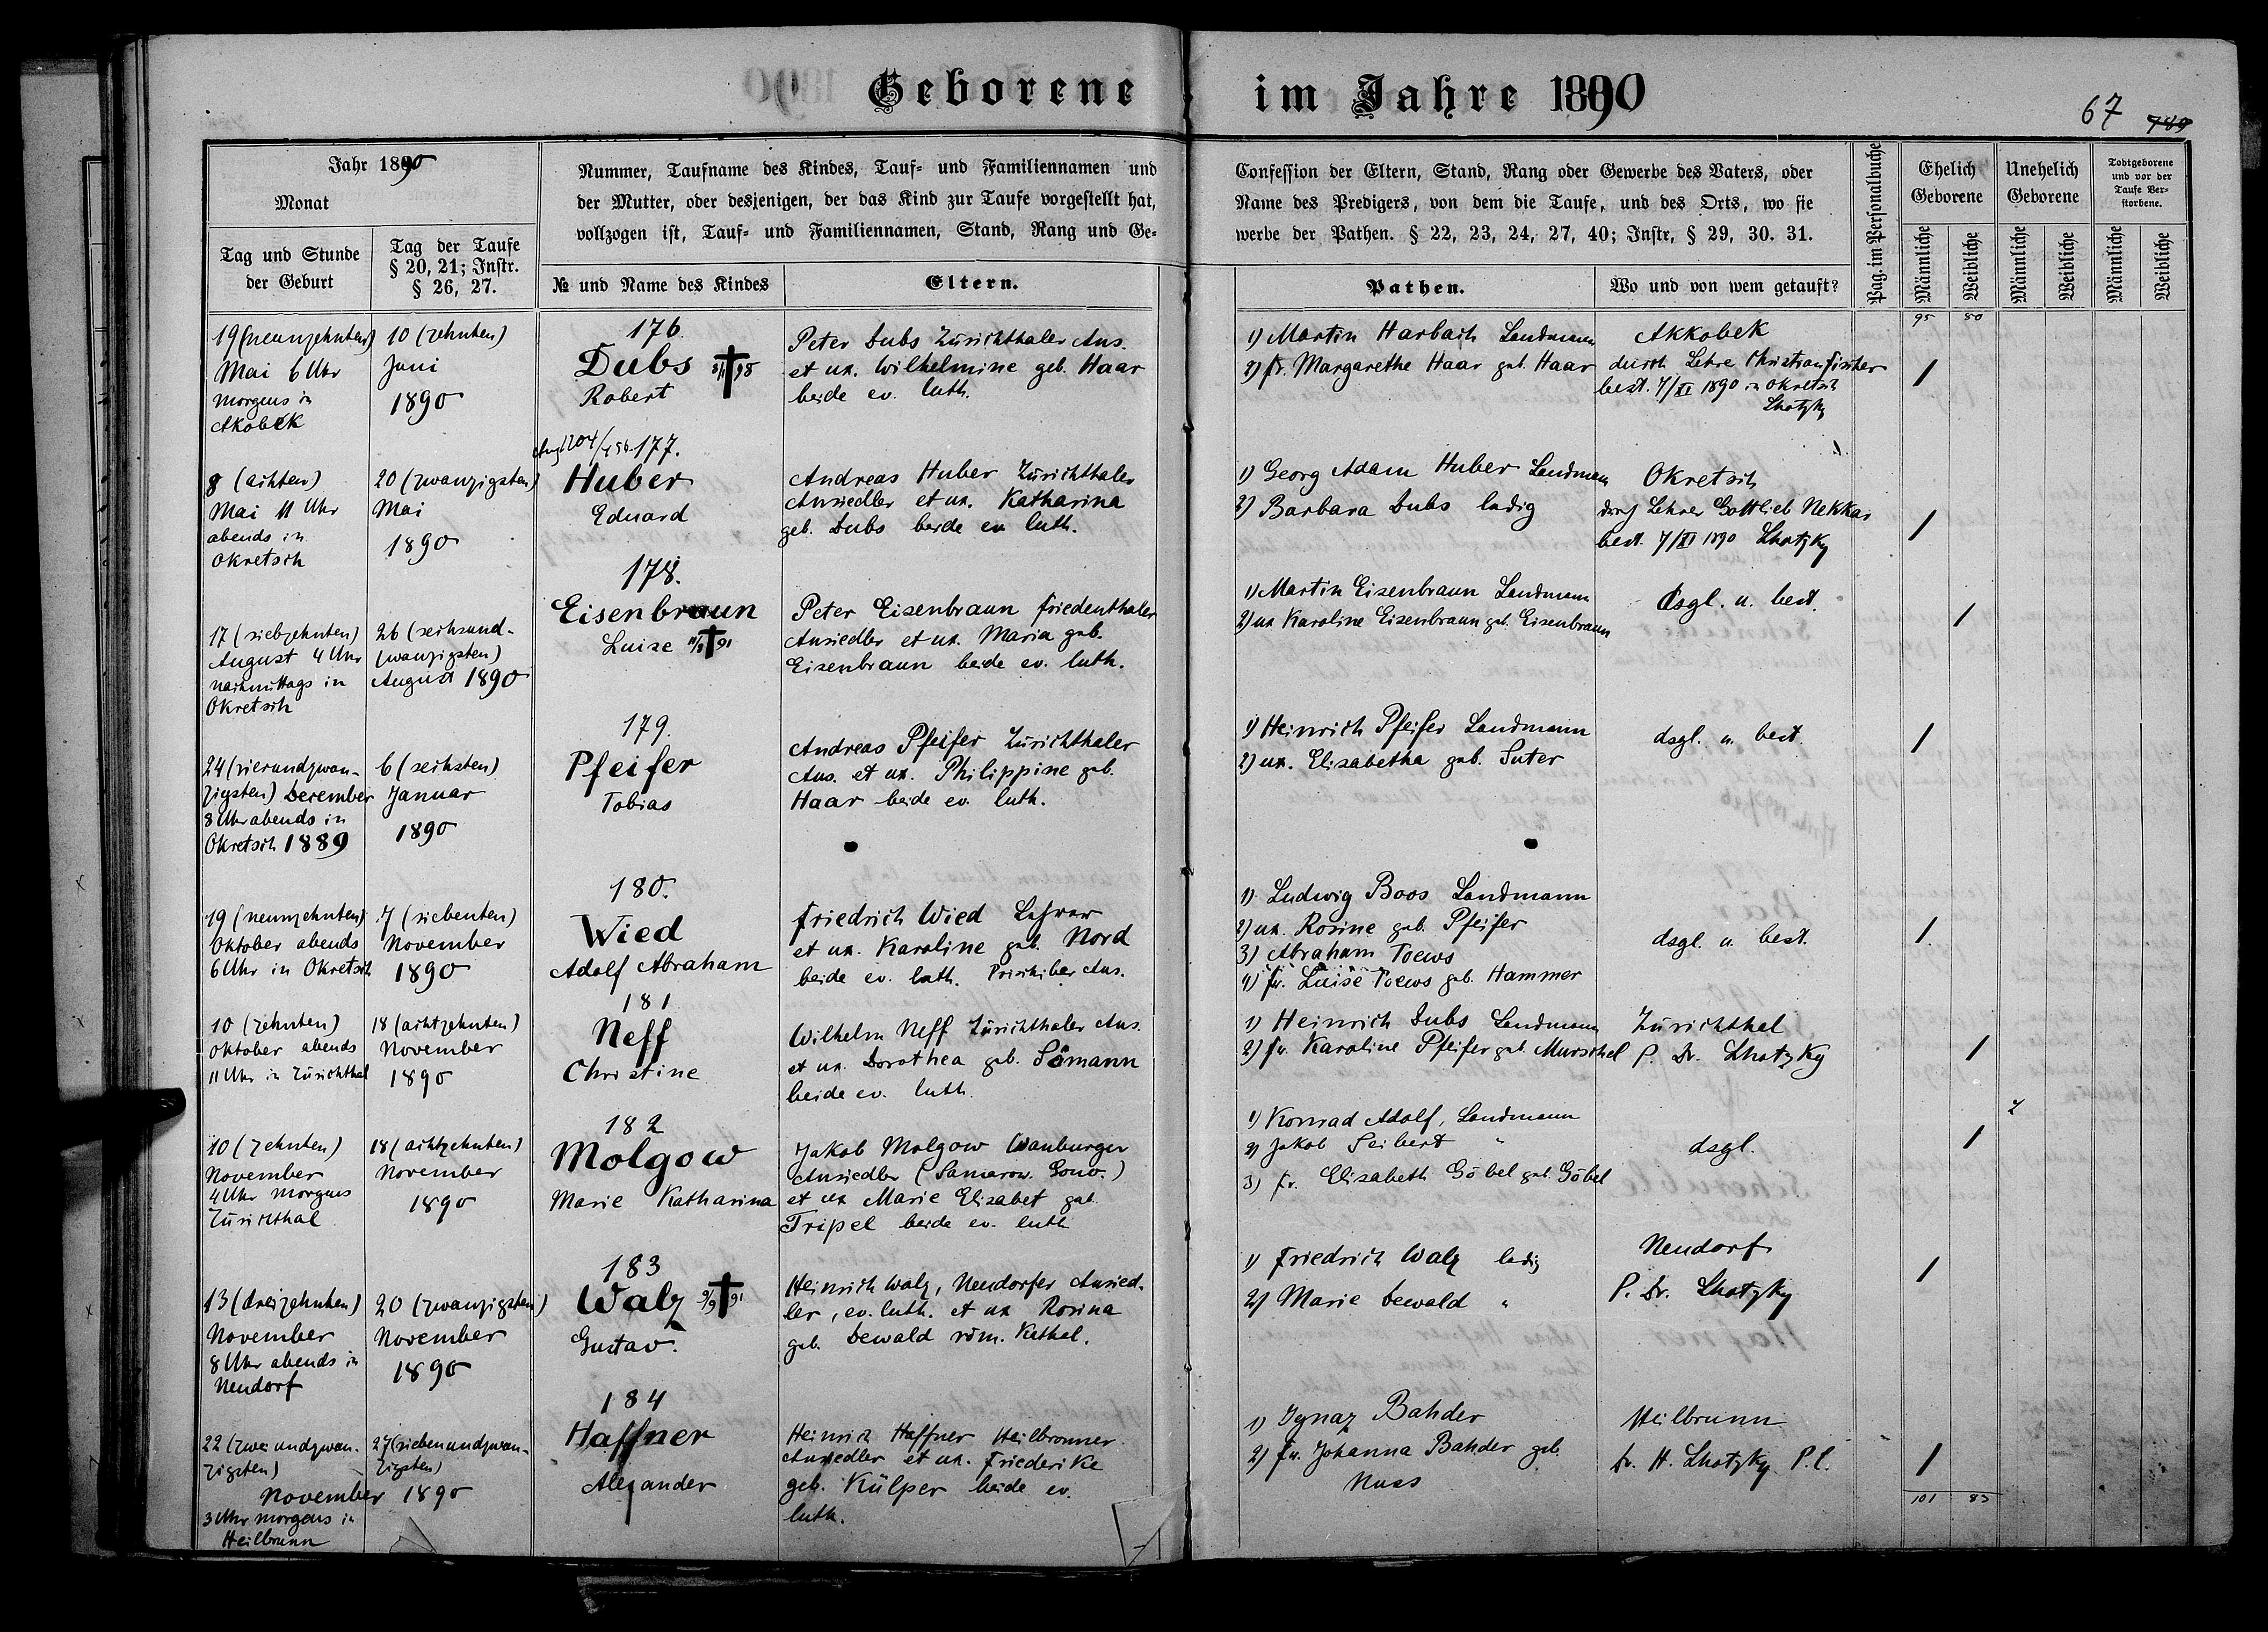 Geborene im Jahre 1890
67 789
Jahr 1890
Monat
Tag und Stunde
der Geburt
Tag der Taufe
§ 20, 21; Instr.
§ 26, 27.
Nummer, Taufname des Kindes, Tauf- und Familiennamen und
der Mutter, oder desjenigen, der das Kind zur Taufe vorgestellt hat,
vollzogen ist, Tauf- und Familiennamen, Stand, Rang und Ge-
№ und Name des Kindes
Eltern.
Confession der Eltern, Stand, Rang oder Gewerbe des Vaters, oder
Name des Predigers, von dem die Taufe, und des Orts, wo sie
werbe der Pathen. § 22, 23, 24, 27, 40; Instr, § 29, 30. 31.
Pathen.
Wo und von wem getauft?
Pag. im Personalbuche
Ehelich
Geborene
Unehelich
Geborene
Todtgeborene
und vor der
Taufe Ver-
storbene.
Männliche
Weibliche
Männliche
Weibliche
Männliche
Weibliche
95 80
19 (neunzehnten)
Mai 6 Uhr
morgens in
Akobek
10 (zehnten)
Juni
1890
176
Dubs
Robert
Peter Dubs Zürichthaler Ans.
et ux. Wilhelmine geb. Haar
beide ev. luth.
1) Martin Harbach Landmann
2) fr. Margarethe Haar geb. Haar
Akkobek
durch Lehre Christian Fischer
best. 7/XI 1890 in Okretsch
Lhotzky
/
8 (achten)
Mai 11 Uhr
abends in
Okretsch
20 (zwanzigsten)
Mai
1890
177.
Huber
Eduard
Andreas Huber Zürichthaler
Ansiedler et ux. Katharina
geb. Dubs beide ev luth.
1) Georg Adam Huber Landmann
2) Barbara Dubs ledig
Okretsch
durch Lehrer Gottlieb Nekkar
best. 7/XI 1890 Lhotzky
/
17 (siebzehnten)
August 4 Uhr
nachmittags in
Okretsch
26 (sechsund-
zwanzigsten)
August 1890
178.
Eisenbraun
Luise
Peter Eisenbraun Friedenthaler
Ansiedler et ux. Maria geb.
Eisenbraun beide ev. luth.
1) Martin Eisenbraun Landmann
2) ux Karoline Eisenbraun geb. Eisenbraun
dsgl. u. best.
/
24 (vierundzwan-
zigsten) December
8 Uhr abends in
Okretsch 1889
6 (sechsten)
Januar
1890
179.
Pfeifer
Tobias
Andreas Pfeifer Zürichthaler
Ans. et ux. Philippine geb.
Haar beide ev. luth.
1) Heinrich Pfeifer Landmann
2) ux. Elisabetha geb. Suter
dsgl. u. best.
/
19 (neunzehnten)
Oktober abends
6 Uhr in Okretsch
7 (siebenten)
November
1890
180.
Wied
Adolf Abraham
Friedrich Wied Lehrer
et ux. Karoline geb. Nord
beide ev. luth. Prischiber Ans.
1) Ludwig Boos Landmann
2) ux. Rosine geb. Pfeifer
3) Abraham Toews
4) fr. Luise Toews geb. Hammer
dsgl. u. best.
/
10 (zehnten)
Oktober abends
11 Uhr in Zürichthal
18 (achtzehnten)
November
1890
181
Neff
Christine
Wilhelm Neff Zürichthaler Ans.
et ux. Dorothea geb. Sämann
beide ev. luth.
1) Heinrich Dubs Landmann
2) fr. Karoline Pfeifer geb. Murschel
Zürichthal
P. Dr. Lhotzky
/
10 (zehnten)
November
4 Uhr morgens
Zürichthal
18 (achtzehnten)
November
1890
182
Molgow
Marie Katharina
Jakob Molgow
Ansiedler (Samarow. Gouv.)
et ux Marie Elisabet geb.
Tripel beide ev. luth
1) Konrad Adolf, Landmann
2) Jakob Seibert "
3) fr. Elisabeth Göbel geb. Göbel
dsgl.
/
13 (dreizehnten)
November
8 Uhr abends in
Neudorf
20 (zwanzigsten)
November
1890
183
Walz
Gustav.
Heinrich Walz, Neudorfer Ansied-
ler, ev. luth. et ux Rosina
geb. Dewald röm. Kathol.
1) Friedrich Walz ledig
2) Marie Dewald "
Neudorf
P. Dr. Lhotzky
/
22 (zweiundzwan-
zigsten)
November 1890
3 Uhr morgens in
Heilbrunn
27 (siebenundzwan-
zigsten)
184
Haffner
Alexander
Heinrich Haffner Heilbronner
Ansiedler et ux. Friederike
geb. Külper beide ev.
luth.
1) Ignaz Bahder
2) fr. Johanna Bahder geb.
Nuss
Heilbrunn
Dr. H. Lhotzky P. l.
/
101 83